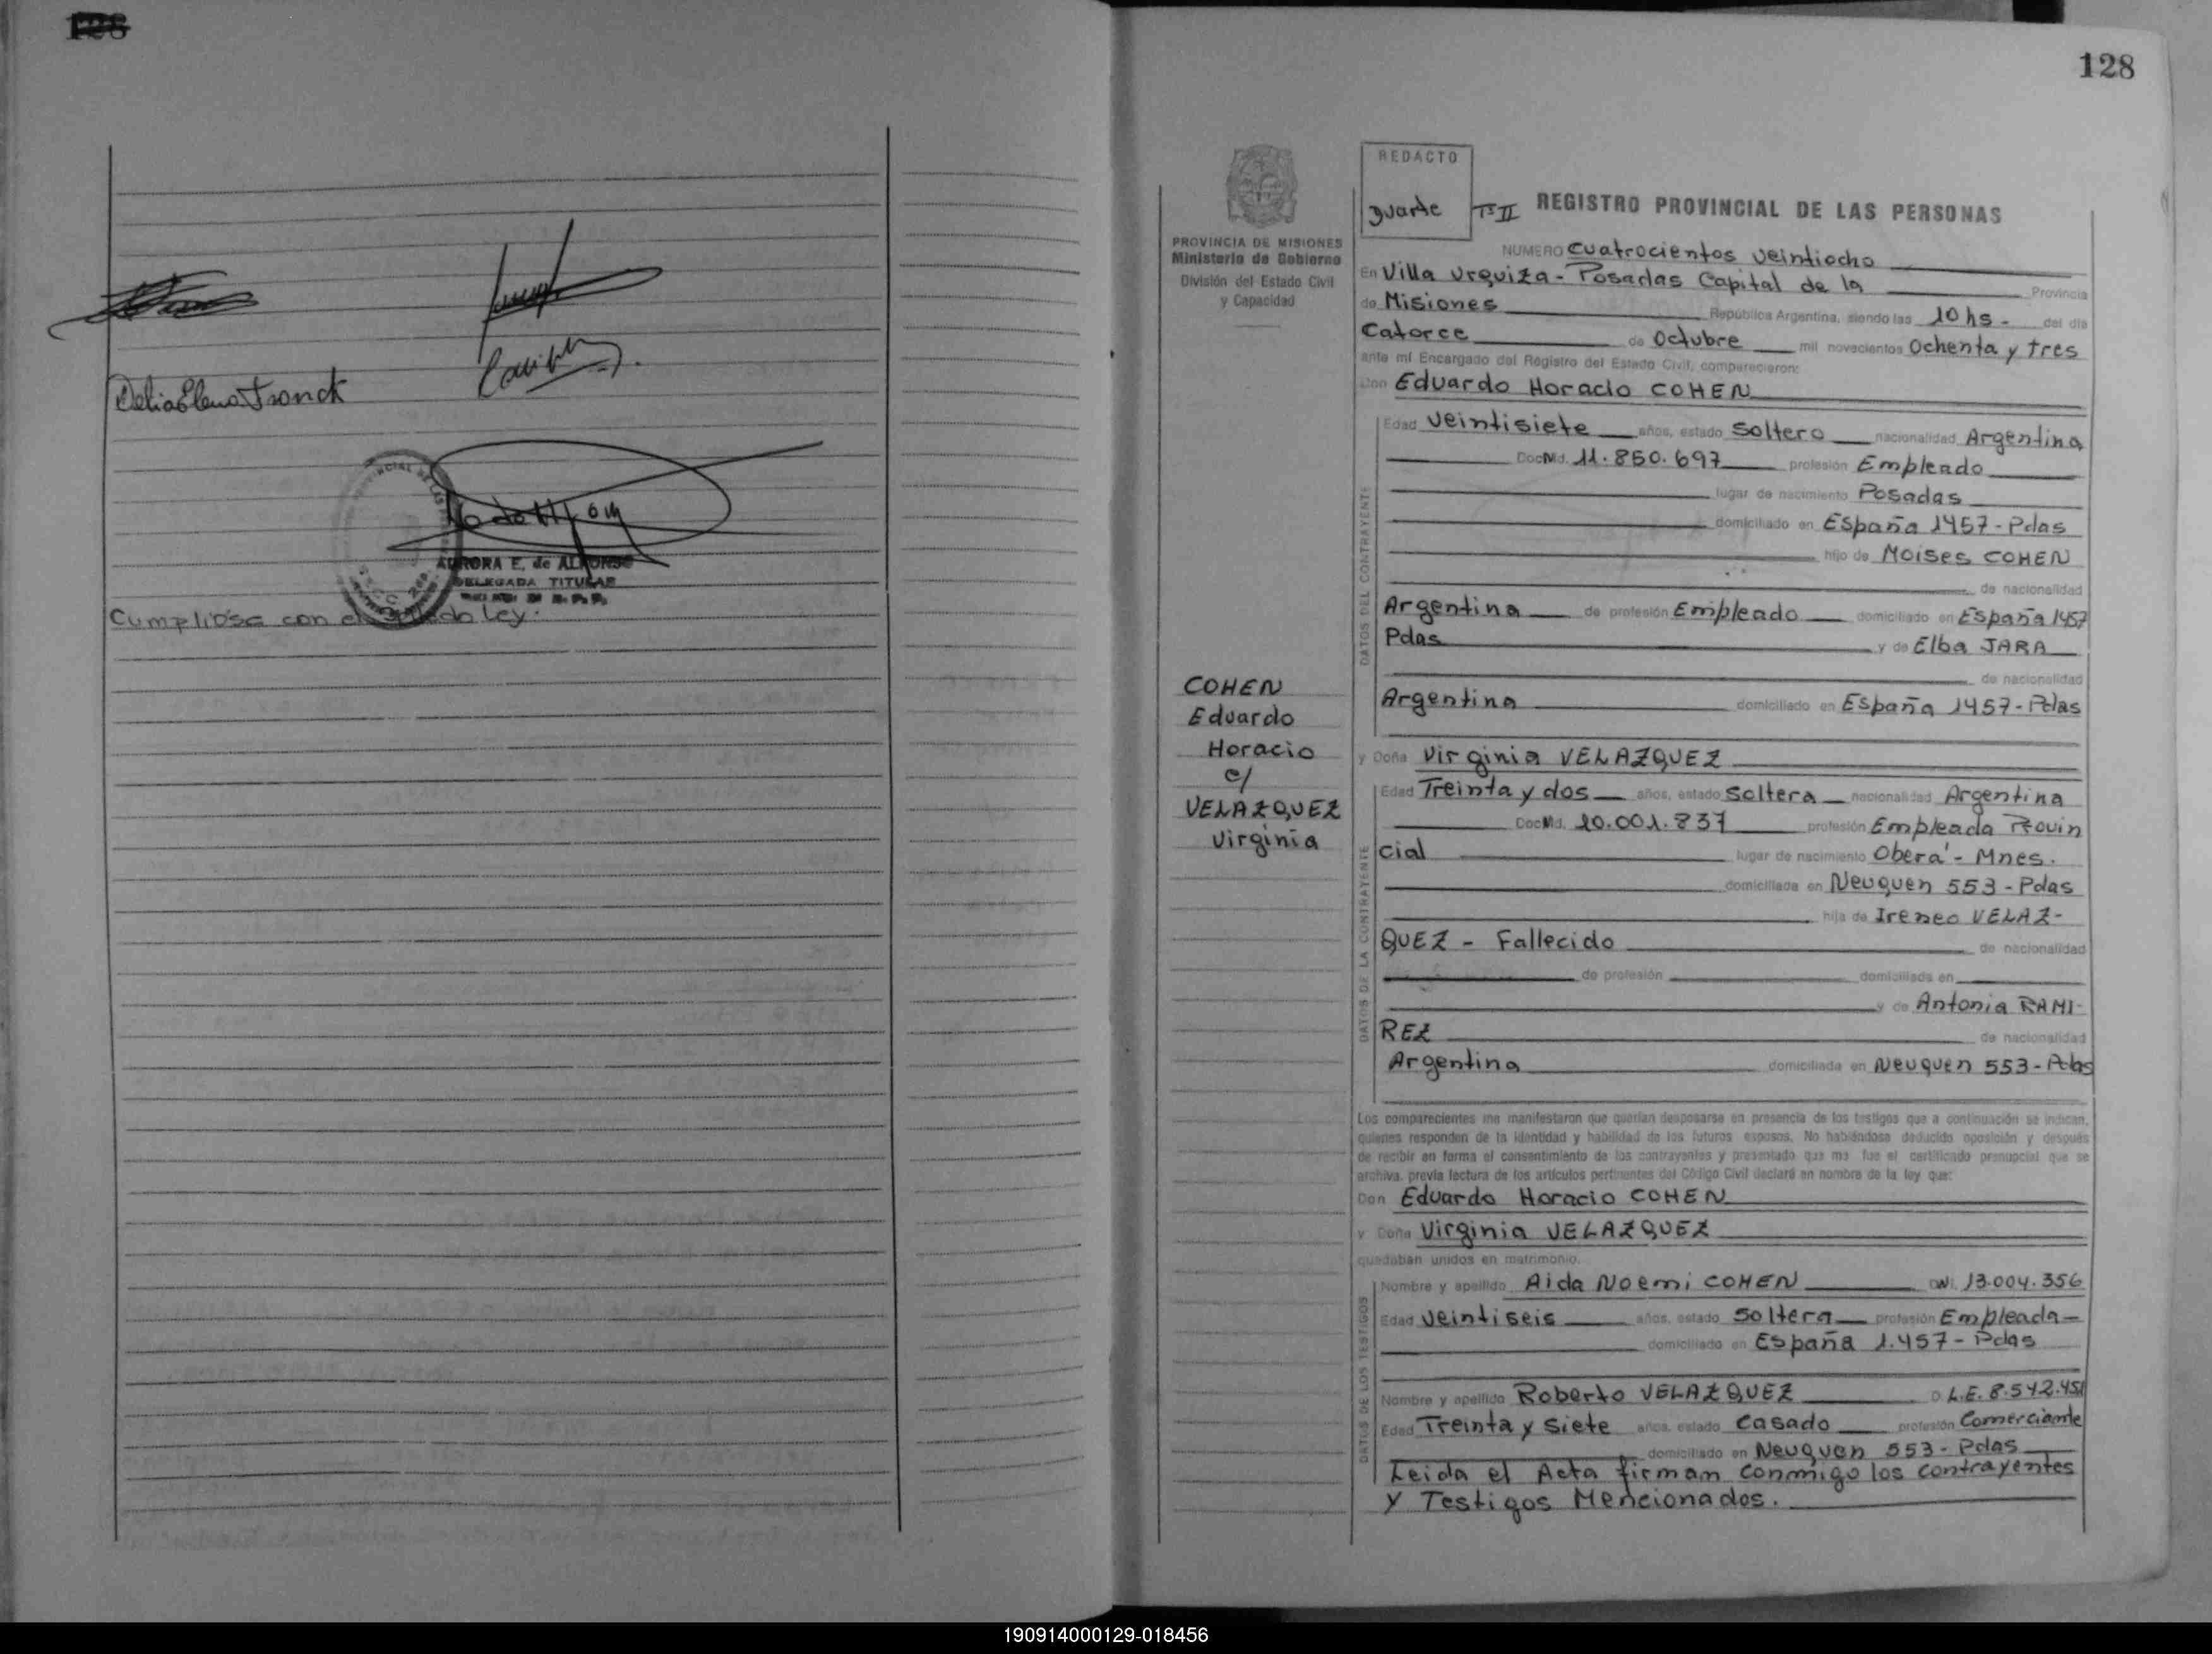 128
Delia Elena Tronck
AURORA E. de ALFONSO
DELEGADA TITULAR
Cumpliose con el do Ley.
128
REDACTO
Tº II
REGISTRO PROVINCIAL DE LAS PERSONAS
PROVINCIA DE MISIONES
Ministerio de Gobierno
División del Estado Civil
y Capacidad
NUMERO Cuatrocientos veintiocho
En Villa Urquiza - Posadas Capital de la Provincia
de Misiones República Argentina, siendo las 10 hs - del día
Catorce de Octubre mil novecientos Ochenta y tres
ante mí Encargado del Registro del Estado Civil, comparecieron:
Don Eduardo Horacio COHEN
DATOS DEL CONTRAYENTE
Edad Veintisiete años, estado Soltero nacionalidad Argentina
Doc Nº. 11.850.697 profesión Empleado
lugar de nacimiento Posadas
domiciliado en España 1457 - Pdas
hijo de Moises COHEN
de nacionalidad
Argentina de profesión Empleado domiciliado en España 1457
Pdas y de Elba JARA
de nacionalidad
Argentina domiciliado en España 1457 - Pdas
COHEN
Eduardo
Horacio
c/
VELAZQUEZ
Virginia
y Doña Virginia VELAZQUEZ
DATOS DE LA CONTRAYENTE
Edad Treinta y dos años, estado Soltera nacionalidad Argentina
Doc Nº. 10.001.837 profesión Empleada Provin
cial lugar de nacimiento Oberá - Mnes.
domiciliada en Neuquen 553 - Pdas
hija de Ireneo VELAZ-
QUEZ - Fallecido de nacionalidad
de profesión domiciliada en
y de Antonia RAMI-
REZ de nacionalidad
Argentina domiciliada en Neuquen 553 - Pdas
Los comparecientes me manifestaron que querían desposarse en presencia de los testigos que a continuación se indican,
quienes responden de la identidad y habilidad de los futuros esposos. No habiéndose deducido oposición y después
de recibir en forma el consentimiento de los contrayentes y presentado que me fue el certificado prenupcial que se
archiva, previa lectura de los artículos pertinentes del Código Civil declaré en nombre de la ley que:
Don Eduardo Horacio COHEN
y Doña Virginia VELAZQUEZ
quedaban unidos en matrimonio.
DATOS DE LOS TESTIGOS
Nombre y apellido Aida Noemi COHEN DNI. 13.004.356
Edad Veintiseis años, estado Soltera profesión Empleada
domiciliado en España 1.457 - Pdas
Nombre y apellido Roberto VELAZQUEZ D L.E. 8.542.451
Edad Treinta y Siete años, estado Casado profesión Comerciante
domiciliado en Neuquen 553 - Pdas
Leida el Acta firman conmigo los contrayentes
y Testigos Mencionados.
190914000129-018456